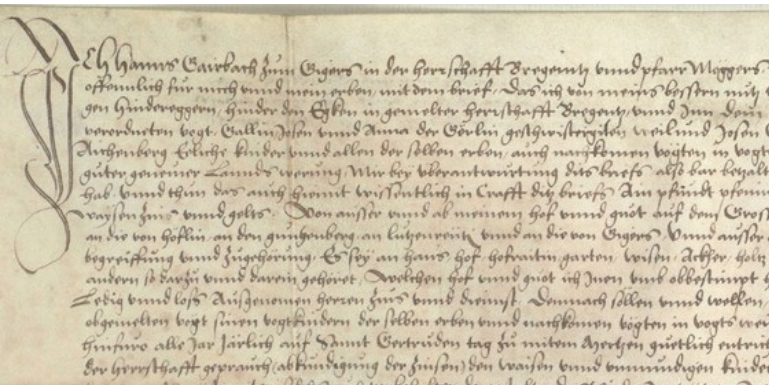 Ich Hanns Gairbach zum Gigers in der herrschafft Bregentz vnnd pfarr Möggers
offennlich für mich vnnd mein erben, mit dem brief, Das ich von meins bessern nutz
gen Hindereggern, hinder den Eyken in gemelter herrschafft Bregentz, vnnd Inn dem
verordneten vogt, Gallin Josen vnnd Anna der Görlin geschwistergiten weilund Josen
Aichenberg Eeliche kinder vnnd allen der selben erben, auch nachkomen vögten in vogts
guter genemer Lannds werung, Mir bey überantwürtung dits briefs also bar betzalt
hab. Vnnd thun das auch hiemit wissentlich in Crafft ditz briefs Ain pfundt pfening
waysen zins vnnd gelts. Von ausser vnnd ab meinem hof vnnd guot auf dem Gross
an die von höflin, an den an lutzenreuti vnnd an die von Gigers, Vnnd ausser
begreiffung vnnd zugehörung, Es sey an haus, hof, hofraitin, garten, wisen, Ackher, holtz
andern so darzu vnnd darein gehöret, Welchen hof vnnd guot ich Inen vmb obbestimpt
Ledig vnnd loss Ausgenomen herren zins vnnd dreinst, Demnach sollen vnnd wellen,
obgemelten vogt sinen vogtkindern der selben erben vnnd nachkomen vögten in vogts
hinfuro alle Jar Järlich auf Sannt Gertruden tag zu mitem Mertzen guetlich entrichten
der herrschafft geprauch (abkündigung der zinsen) den waisen vnnd vnmundigen kinder